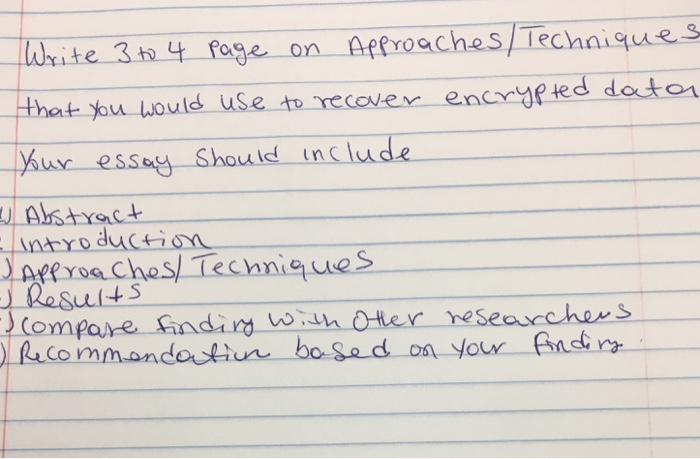 Write 3 to 4 page on Approaches/Techniques
that you would use to recover encrypted data
Your essay should include
Abstract
Introduction
Approaches/Techniques
Results
Compare finding with Other researchers
Recommendation based on your finding